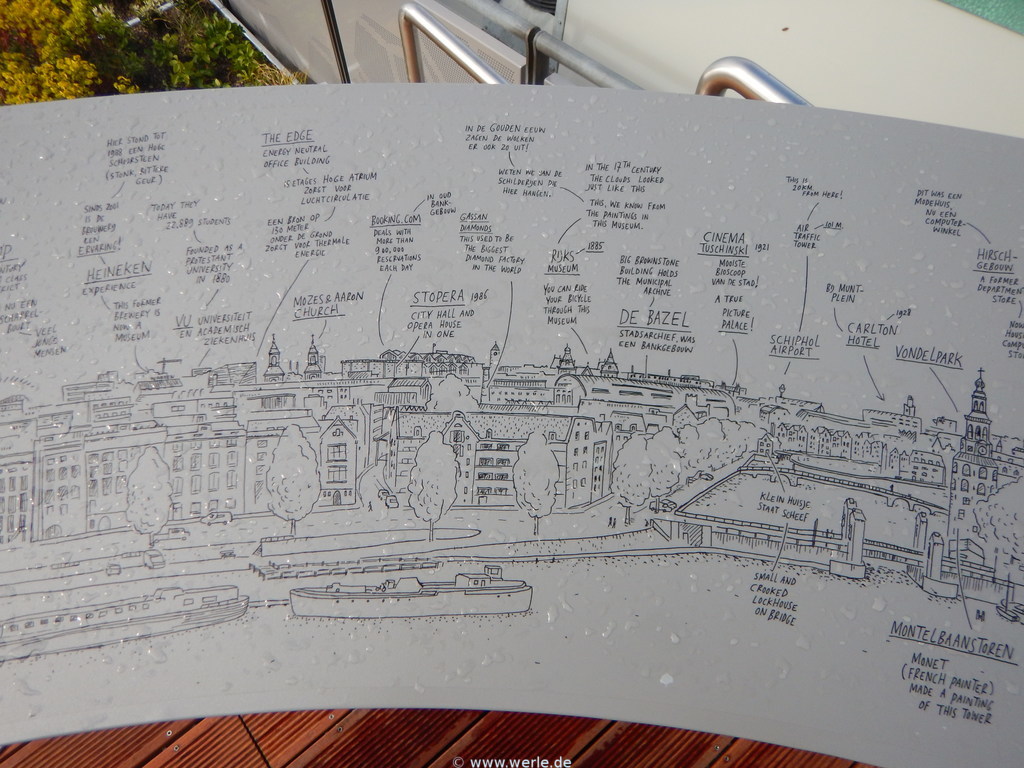 HIER STOND TOT
EEN HOGE
SCHOORSTEEN
(STONK, BITTERE
GEUR)
THE EDGE
ENERGY NEUTRAL
OFFICE BUILDING
15 ETAGES HOGE ATRIUM
ZORGT VOOR
LUCHTCIRCULATIE
IN DE GOUDEN EEUW
ZAGEN DE WOLKEN
ER OOK ZO UIT!
WETEN WE VAN DE
SCHILDERIJEN DIE
HIER HANGEN.
IN THE 17TH CENTURY
THE CLOUDS LOOKED
JUST LIKE THIS
THIS, WE KNOW FROM
THE PAINTINGS IN
THIS MUSEUM.
THIS IS
20KM
FROM HERE!
AIR
TRAFFIC
TOWER
101 M.
DIT WAS EEN
MODEHUIS,
NU EEN
COMPUTER-
WINKEL
HIRSCH-
GEBOUW
A FORMER
DEPARTMENT
STORE
SINDS
IS DE
BROUWERIJ
EEN
ERVARING!
HEINEKEN
EXPERIENCE
THIS FORMER
BREWERY IS
NOW A
MUSEUM
VEEL
MENSEN
TODAY THEY
HAVE
22,889 STUDENTS
FOUNDED AS A
PROTESTANT
UNIVERSITY
IN 1880
VU UNIVERSITEIT
EN ACADEMISCH
ZIEKENHUIS
EEN BRON OP
130 METER
ONDER DE GROND
ZORGT VOOR THERMALE
ENERGIE
MOZES & AARON
CHURCH
IN OUD
BANK-
GEBOUW
BOOKING.COM
DEALS WITH
MORE THAN
900,000
RESERVATIONS
EACH DAY
STOPERA 1986
CITY HALL AND
OPERA HOUSE
IN ONE
GASSAN
DIAMONDS
THIS USED TO BE
THE BIGGEST
DIAMOND FACTORY
IN THE WORLD
RIJKS
MUSEUM
1885
YOU CAN RIDE
YOUR BICYCLE
THROUGH THIS
MUSEUM
BIG BROWNSTONE
BUILDING HOLDS
THE MUNICIPAL
ARCHIVE
DE BAZEL
STADSARCHIEF, WAS
EEN BANKGEBOUW
CINEMA
TUSCHINSKI 1921
MOOISTE
BIOSCOOP
VAN DE STAD!
A TRUE
PICTURE
PALACE!
SCHIPHOL
AIRPORT
BIJ MUNT-
PLEIN
CARLTON
HOTEL
1928
VONDELPARK
KLEIN HUISJE
STAAT SCHEEF
SMALL AND
CROOKED
LOCKHOUSE
ON BRIDGE
MONTELBAANSTOREN
MONET
(FRENCH PAINTER)
MADE A PAINTING
OF THIS TOWER
© www.werle.de